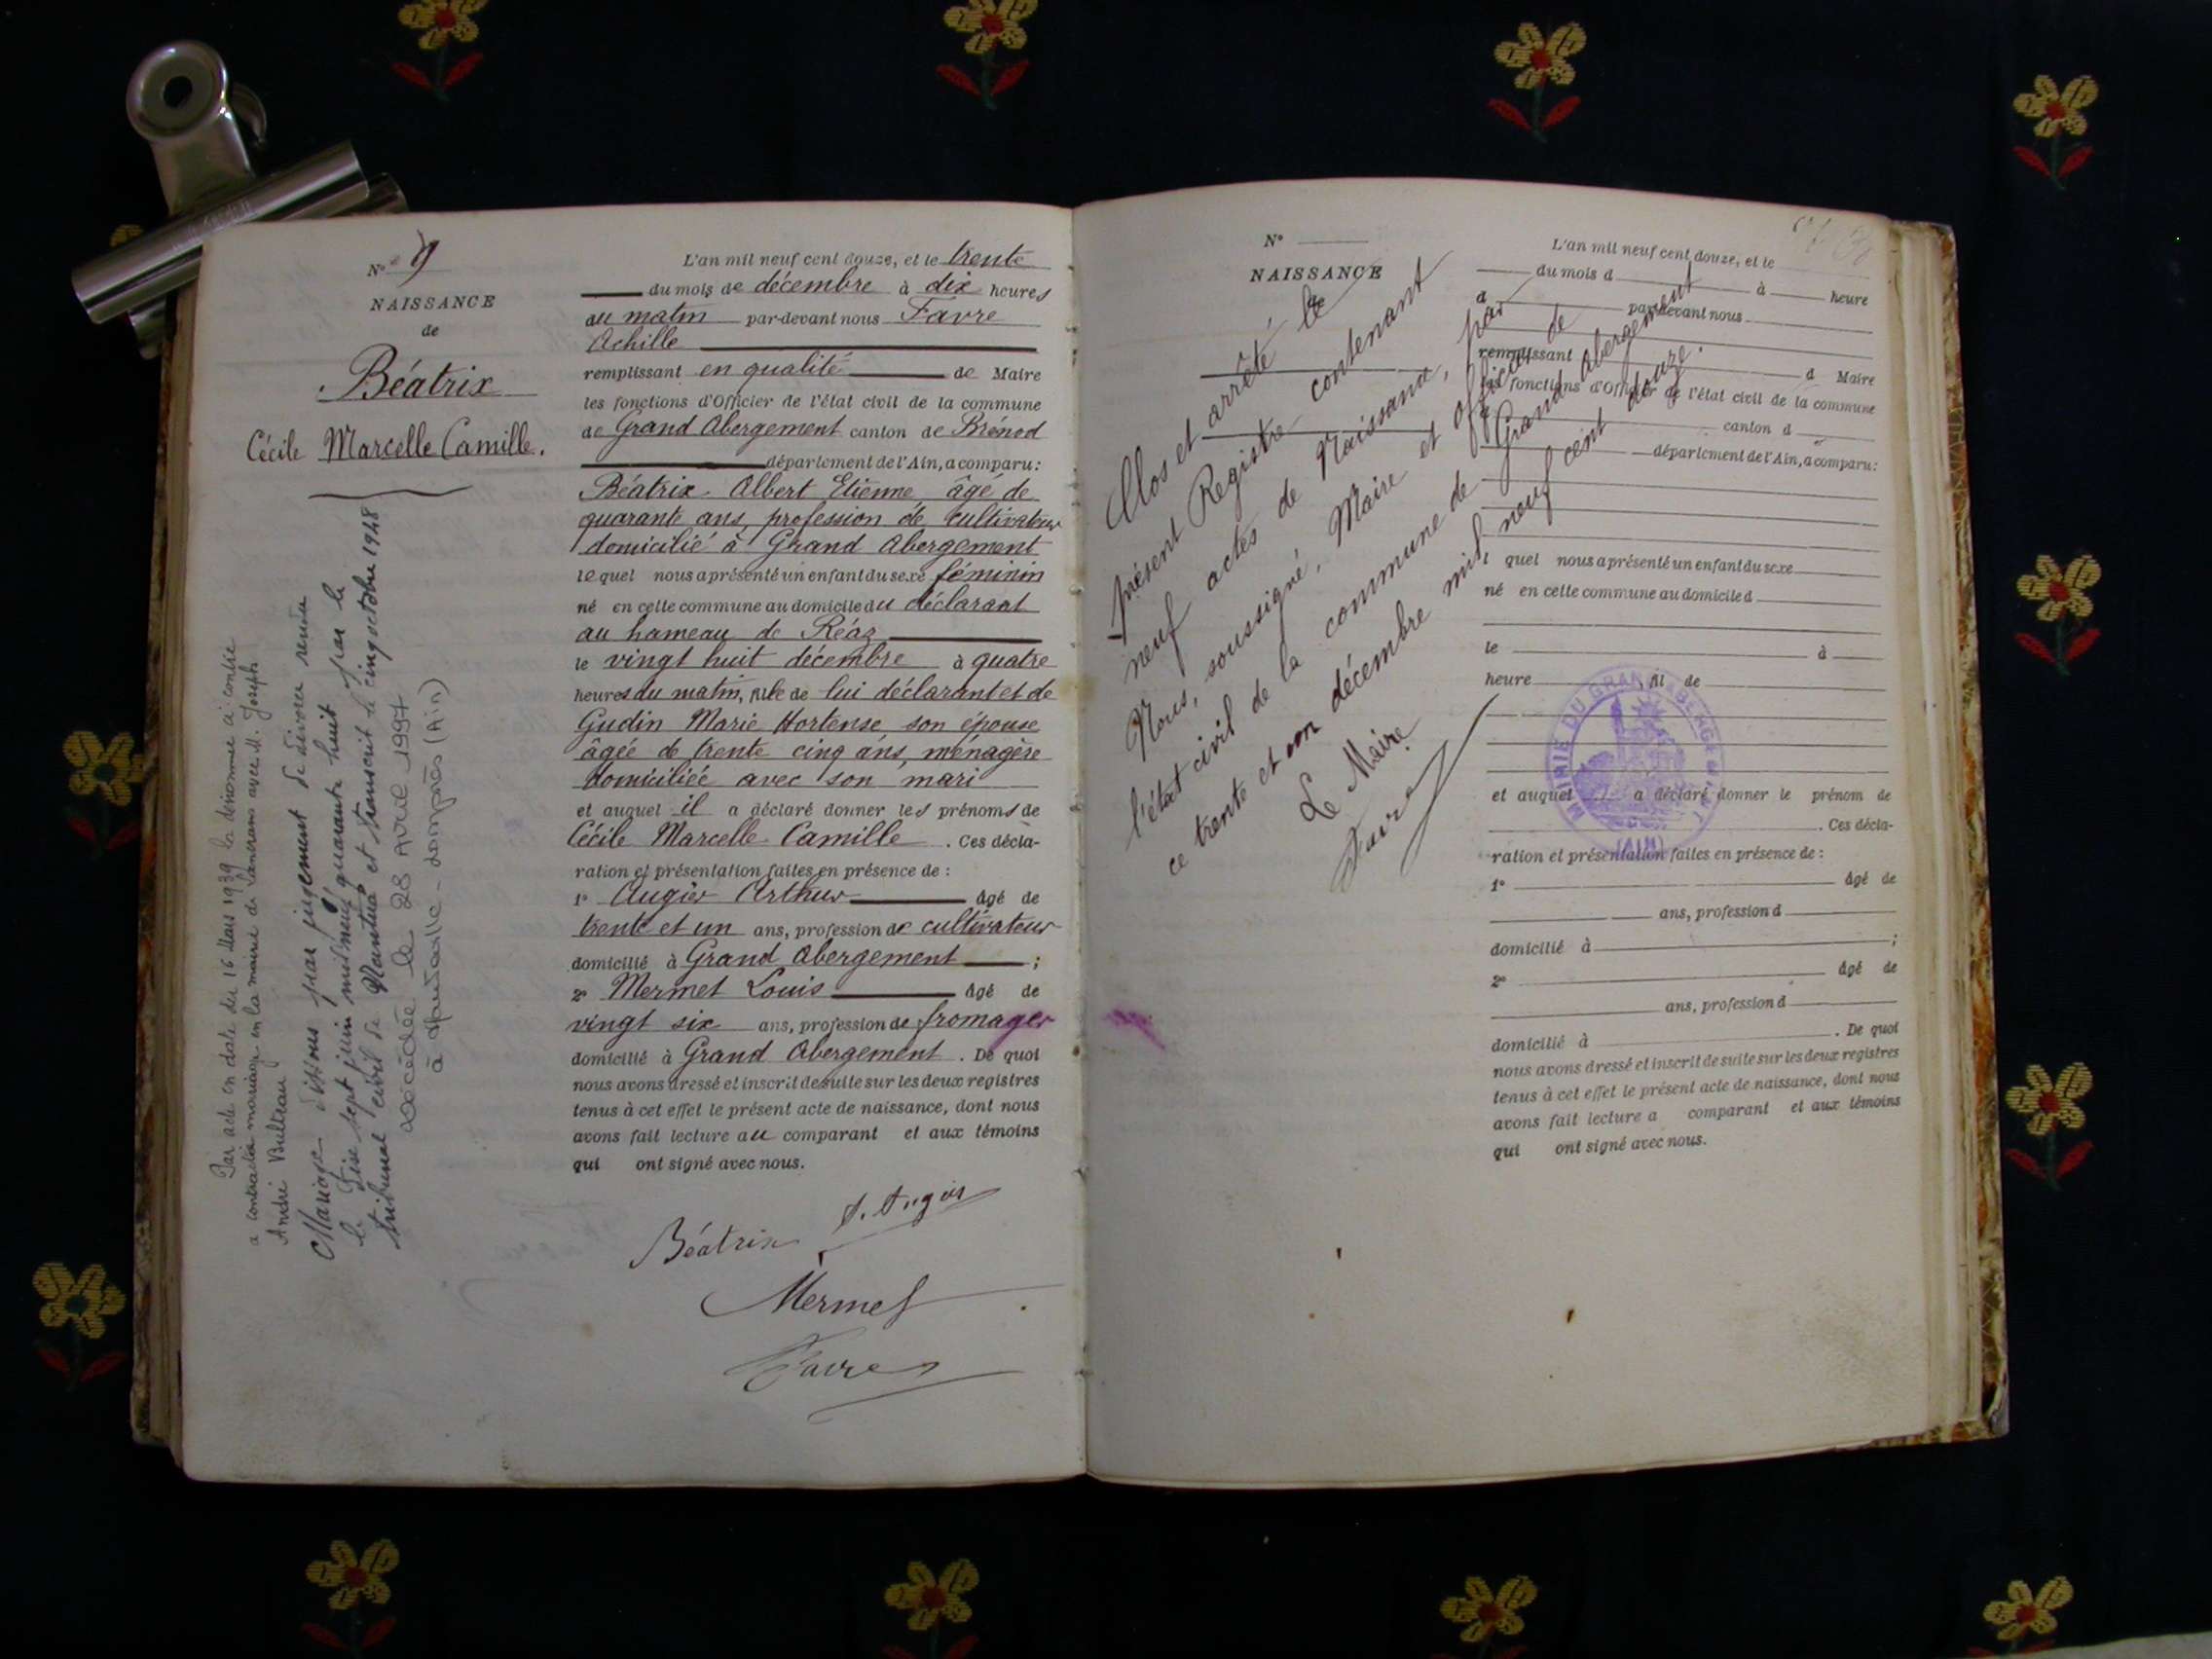 N° 9
NAISSANCE
de
Béatrix
Cécile Marcelle Camille.
Par acte en date du 16 Mars 1939 la dénommée ci-contre
a contracté mariage en la mairie de Lancrans avec M. Joseph
André Bulteau
Mariage dissous par jugement de divorce rendu
le sept juin mil neuf quarante huit par le
tribunal civil de Nantua et transcrit le cinq octobre 1948
Décédée le 28 Avril 1997
à Hauteville-Lompnes (Ain)
L'an mil neuf cent douze, et le trente
du mois de décembre à dix heures
du matin par-devant nous Favre
Achille
remplissant en qualité de Maire
les fonctions d'Officier de l'état civil de la commune
de Grand Abergement canton de Brénod
département de l'Ain, a comparu:
Béatrix Albert Etienne âgé de
quarante ans, profession de cultivateur
domicilié à Grand Abergement
lequel nous a présenté un enfant du sexe féminin
né en cette commune au domicile du déclarant
au hameau de Réaz
le vingt huit décembre à quatre
heures du matin, fille de lui déclarant et de
Gudin Marie Hortense son épouse
âgée de trente cinq ans, ménagère
domiciliée avec son mari
et auquel il a déclaré donner les prénoms de
Cécile Marcelle Camille. Ces décla-
ration et présentation faites en présence de :
1° Augier Arthur âgé de
trente et un ans, profession de cultivateur
domicilié à Grand Abergement ;
2° Mermet Louis âgé de
vingt six ans, profession de fromager
domicilié à Grand Abergement. De quoi
nous avons dressé et inscrit de suite sur les deux registres
tenus à cet effet le présent acte de naissance, dont nous
avons fait lecture au comparant et aux témoins
qui ont signé avec nous.
A. Augier
Béatrix
Mermet
Favre
N°
NAISSANCE
de
Clos et arrêté le
présent Registre contenant
neuf actes de Naissance, par
Nous, soussigné, Maire et officier de
l'état civil de la commune de Grand Abergement
ce trente et un décembre mil neuf cent douze.
Le Maire
Favre
L'an mil neuf cent douze, et le
du mois d à heure
d par-devant nous
remplissant d Maire
les fonctions d'Officier de l'état civil de la commune
d canton d
département de l'Ain, a comparu:
l quel nous a présenté un enfant du sexe
né en cette commune au domicile d
le à
heure , fil de
MAIRIE DU GRAND ABERGEMENT
(AIN)
et auquel a déclaré donner le prénom de
. Ces décla-
ration et présentation faites en présence de :
1° âgé de
ans, profession d
domicilié à ;
2° âgé de
ans, profession d
domicilié à . De quoi
nous avons dressé et inscrit de suite sur les deux registres
tenus à cet effet le présent acte de naissance, dont nous
avons fait lecture a comparant et aux témoins
qui ont signé avec nous.